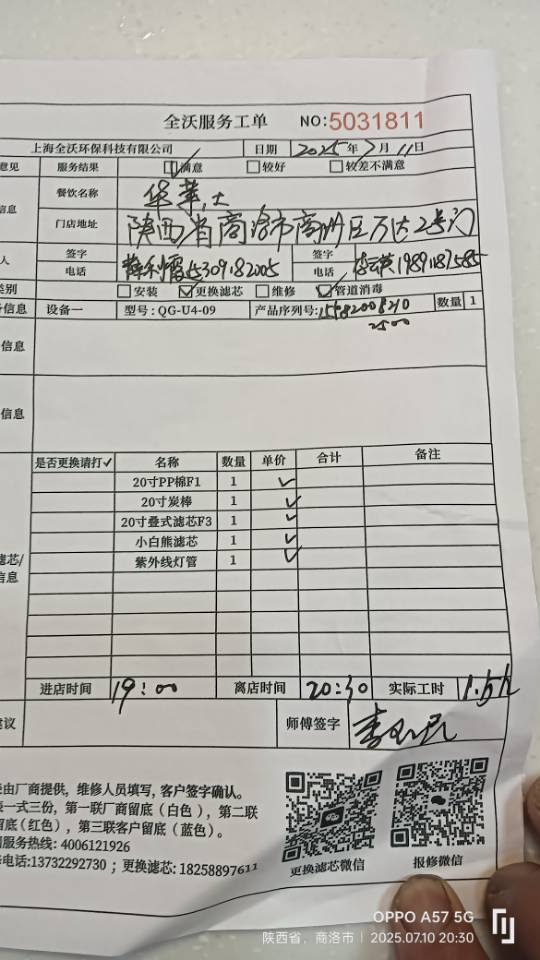 全沃服务工单 NO:5031811
上海全沃环保科技有限公司 日期 2025年7月11日
意见 服务结果 满意 较好 较差不满意
信息 餐饮名称 华莱士
门店地址 陕西省商洛市商州区万达2号门
人 签字 签字
电话 15309182005 电话
类别 安装 更换滤芯 维修 管道消毒
信息 设备一 型号:QG-U4-09 产品序列号: 数量 1
2500
信息
信息
是否更换请打✓ 名称 数量 单价 合计 备注
20寸PP棉F1 1 ✓
20寸炭棒 1 ✓
20寸叠式滤芯F3 1 ✓
小白熊滤芯 1 ✓
紫外线灯管 1 ✓
滤芯/
信息
进店时间 19:00 离店时间 20:30 实际工时 1.5h
建议 师傅签字
由厂商提供，维修人员填写，客户签字确认。
一式三份，第一联厂商留底（白色），第二联
留底(红色），第三联客户留底（蓝色）。
服务热线: 4006121926
电话:13732292730 ; 更换滤芯: 18258897611
更换滤芯微信 报修微信
OPPO A57 5G
陕西省，商洛市 | 2025.07.10 20:30